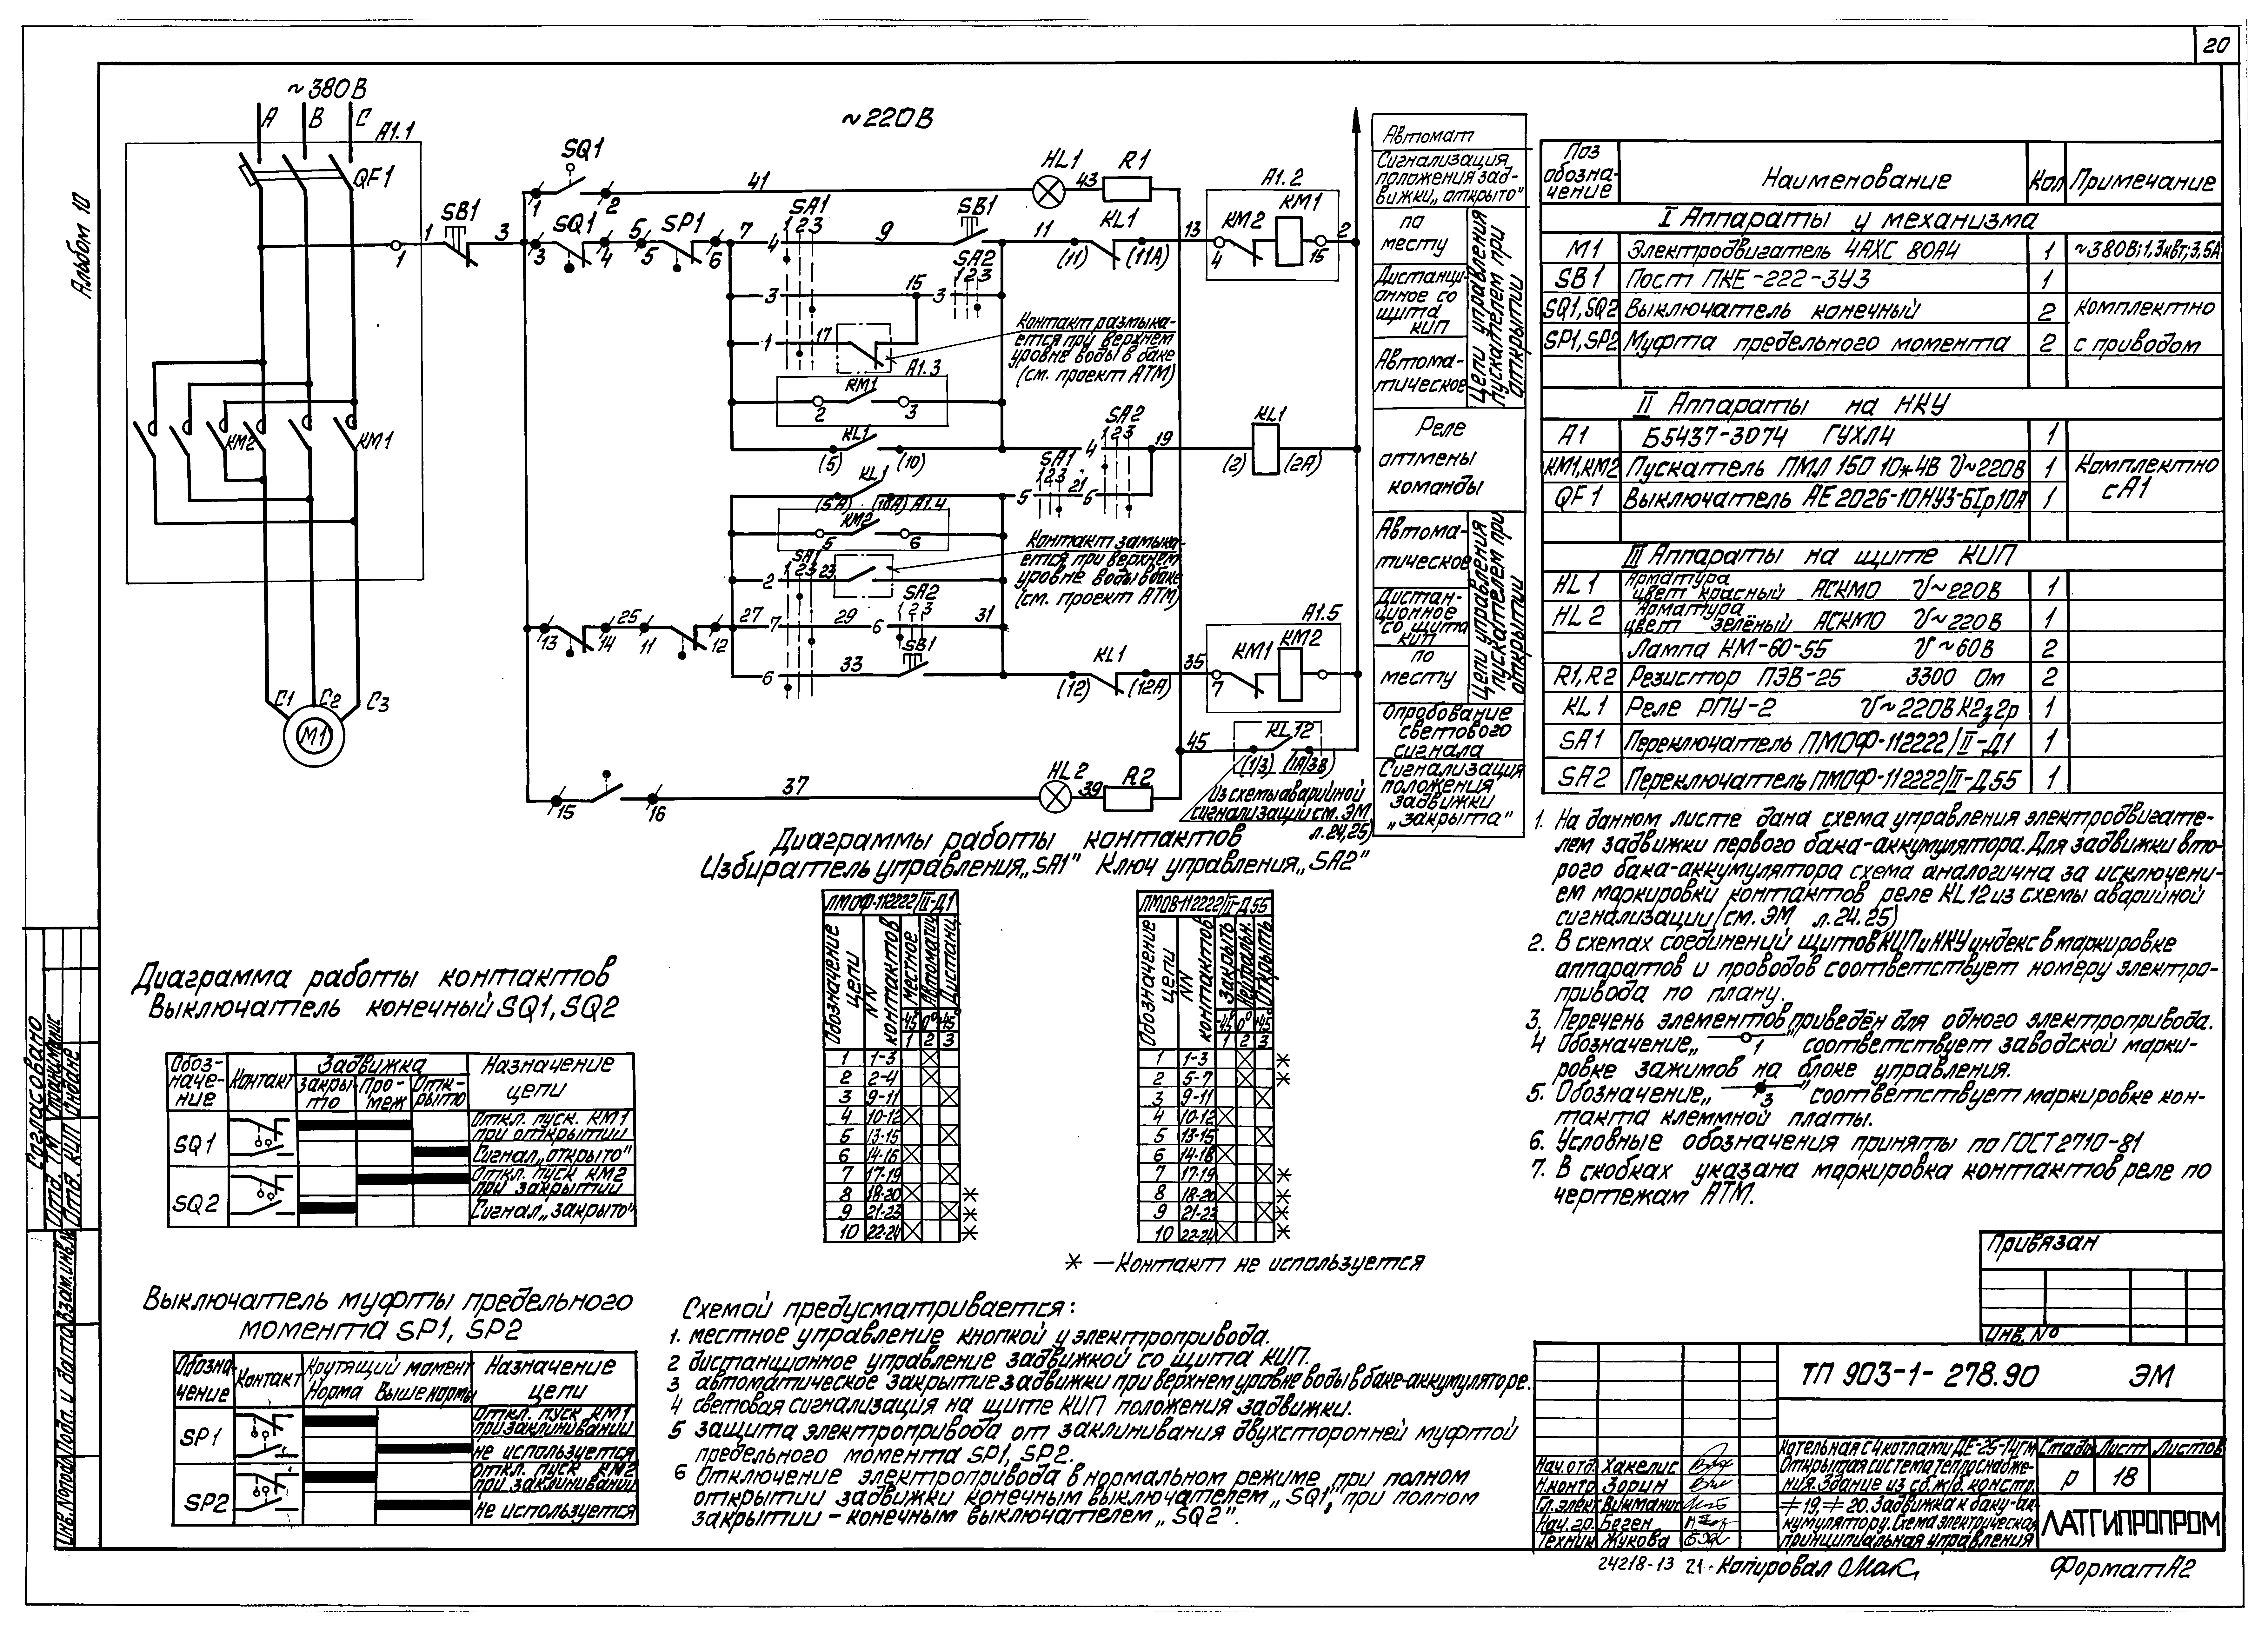 20
Альбом 10
~380В
А В С
А1.1
QF1
КМ2
КМ1
С1 С2 С3
М1
~220В
1
SB1
3
SQ1
1 2
41
HL1
43
R1
SQ1
3 4
5
5
SP1
6
7
SA1
1 2 3
4
9
SB1
11
KL1
(11) (11А)
13
А1.2
КМ2
КМ1
4
15
2
3
15
3
SA2
1 2 3
1
17
Контакт размыка-
ется при верхнем
уровне воды в баке
(см. проект АТМ)
А1.3
КМ1
2 3
KL1
(5) (10)
4
SA2
1 2 3
19
KL1
(2) (2А)
KL1
(5А) (10А)
А1.4
5
SA1
1 2 3
21
6
КМ2
5 6
Контакт замыка-
ется при верхнем
уровне воды в баке
(см. проект АТМ)
SA1
1 2 3
2
23
13 14
25
11 12
27
7
29
6
SA2
1 2 3
31
6
33
SB1
KL1
(12) (12А)
35
А1.5
КМ1
КМ2
7
45
KL12
(1/3) (1А/3В)
Из схемы аварийной
сигнализации см. ЭМ
л.24,25)
15 16
37
HL2
39
R2
Автомат
Сигнализация
положения зад-
вижки „открыто"
по
месту
Дистанци-
онное со
щита
КИП
Автома-
тическое
Цепи управления
пускателем при
открытии
Реле
отмены
команды
Автома-
тическое
Дистан-
ционное
со щита
КИП
по
месту
Цепи управления
пускателем при
открытии
Опробование
светового
сигнала
Сигнализация
положения
задвижки
„закрыта"
Поз
обозна-
чение
Наименование
Кол
Примечание
I Аппараты у механизма
М1 Электродвигатель 4АХС 80А4 1 ~380В; 1,3квт; 3,5А
SB1 Пост ПКЕ-222-3У3 1
SQ1,SQ2 Выключатель конечный 2 комплектно
SP1,SP2 Муфта предельного момента 2 с приводом
II Аппараты на НКУ
А1 Б5437-3074 ГУХЛ4 1
КМ1,КМ2 Пускатель ПМЛ 150 10*4В V~220В 1 Комплектно
QF1 Выключатель АЕ2026-10НУ3-БIр10А 1 с А1
III Аппараты на щите КИП
HL1 Арматура цвет красный АСКМО V~220В 1
HL2 Арматура цвет зелёный АСКМО V~220В 1
Лампа КМ-60-55 V~60В 2
R1,R2 Резистор ПЭВ-25 3300 Ом 2
KL1 Реле РПУ-2 V~220В К2з2р 1
SA1 Переключатель ПМОФ-112222/II-Д1 1
SA2 Переключатель ПМОФ-112222/II-Д55 1
1. На данном листе дана схема управления электродвигате-
лем задвижки первого бака-аккумулятора. Для задвижки вто-
рого бака-аккумулятора схема аналогична за исключени-
ем маркировки контактов реле KL12 из схемы аварийной
сигнализации (см. ЭМ л.24.25)
2. В схемах соединений щитов КИП и НКУ индекс в маркировке
аппаратов и проводов соответствует номеру электро-
привода по плану.
3. Перечень элементов приведён для одного электропривода.
4 Обозначение „ 1 " соответствует заводской марки-
ровке зажимов на блоке управления.
5. Обозначение „ 3 " соответствует маркировке кон-
такта клеммной платы.
6. Условные обозначения приняты по ГОСТ 2710-81
7. В скобках указана маркировка контактов реле по
чертежам АТМ.
Диаграммы работы контактов
Избиратель управления „SA1" Ключ управления „SA2"
ПМОФ-112222/II-Д1
Обозначение цепи
NN контактов
местное
Автоматич
Дистанц.
-45° 0° +45°
1 2 3
1 1-3
2 2-4
3 9-11
4 10-12
5 13-15
6 14-16
7 17-19
8 18-20 *
9 21-23 *
10 22-24 *
ПМОВ-112222/II-Д55
Обозначение цепи
NN контактов
Закрыть
Нейтральн.
Открыть
-45° 0° +45°
1 2 3
1 1-3 *
2 5-7 *
3 9-11
4 10-12
5 13-15
6 14-18
7 17-19 *
8 18-20 *
9 21-23 *
10 22-24 *
* — Контакт не используется
Диаграмма работы контактов
Выключатель конечный SQ1, SQ2
Обоз-
наче-
ние
Контакт
Задвижка
Закры-
то
Про-
меж
Отк-
рыто
Назначение
цепи
SQ1
Откл. пуск. КМ1
при открытии
Сигнал „открыто"
SQ2
Откл. пуск КМ2
при закрытии
Сигнал „закрыто"
Выключатель муфты предельного
момента SP1, SP2
Обозна-
чение
Контакт
Крутящий момент
Норма Выше нормы
Назначение
цепи
SP1
Откл. пуск КМ1
при заклинивании
не используется
SP2
Откл. пуск КМ2
при заклинивании
Не используется
Схемой предусматривается:
1. местное управление кнопкой у электропривода.
2 дистанционное управление задвижкой со щита КИП.
3 автоматическое закрытие задвижки при верхнем уровне воды в баке-аккумуляторе.
4 световая сигнализация на щите КИП положения задвижки.
5 защита электропривода от заклинивания двухсторонней муфтой
предельного момента SP1, SP2.
6 Отключение электропривода в нормальном режиме при полном
открытии задвижки конечным выключателем „SQ1", при полном
закрытии – конечным выключателем „SQ2".
Согласовано
Отд. ТМ
Отд. КИП
Инв.№подл Подп. и дата Взам.инв.№
Привязан
Инв. №
ТП 903-1-278.90 ЭМ
Нач.отд. Хакелис
Н.контр Зорин
Гл.элект Викманис
Нач.гр. Беген
Техник Жукова
Котельная с 4 котлами ДЕ-25-14ГМ
Открытая система теплоснабже-
ния. Здание из сб.ж/б. констр.
#19, #20. Задвижка к баку-ак-
кумулятору. Схема электрическая
принципиальная управления
Стадия Лист Листов
р 18
ЛАТГИПРОПРОМ
24218-13 21 Копировал
Формат А2